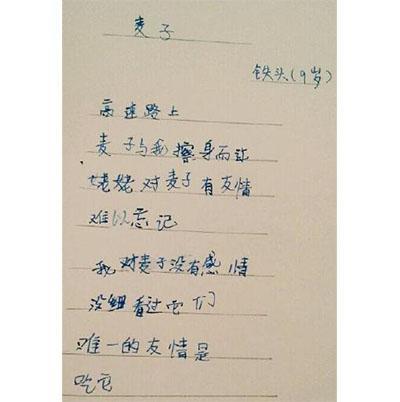 麦子
铁头(9岁)
高速路上
麦子与我擦身而过
姥姥对麦子有友情
难以忘记
我对麦子没有感情
没细看过它们
唯一的友情是
吃它